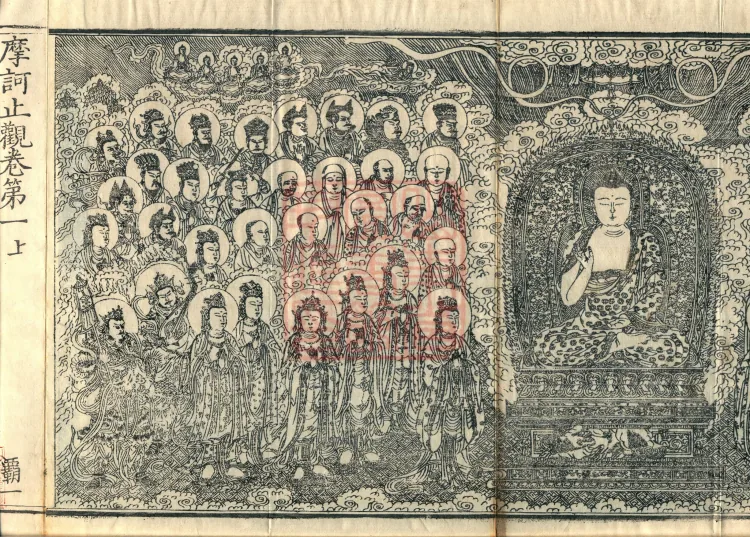 摩訶止觀卷第一上
覇一